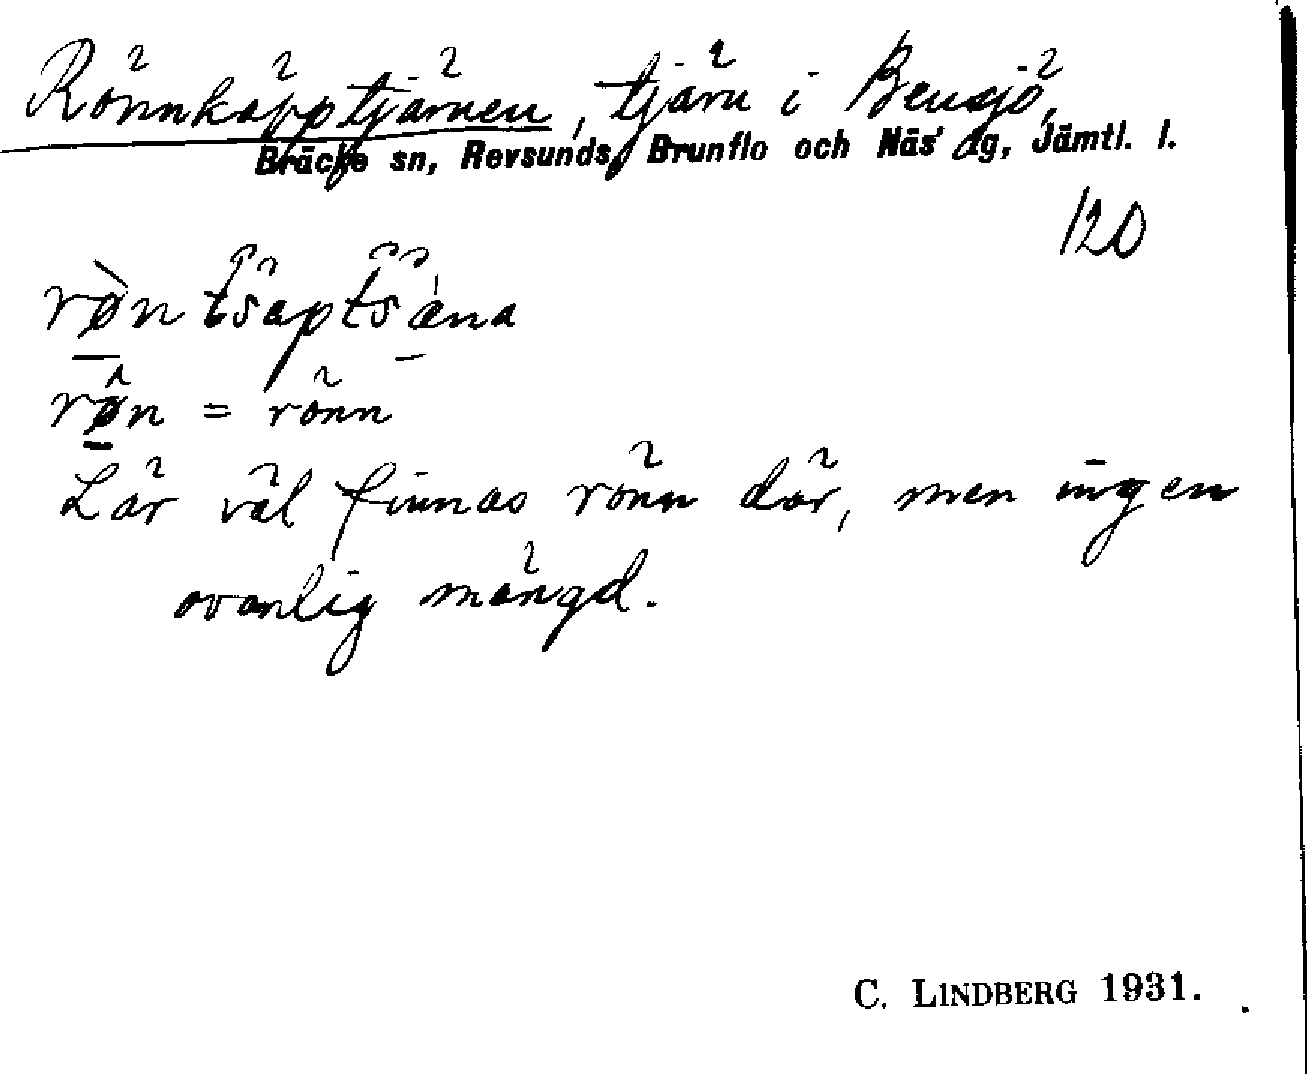 Rönnkäpptjärnen, tjärn i Bensjö,
Bräcke sn, Revsunds, Brunflo och Näs dg, Jämtl. l.
120
rø̀n tšaptšæ̀na
rø̂n = rönn
Lär väl finnas rönn där, men ingen
ovanlig mängd.
C. LINDBERG 1931.